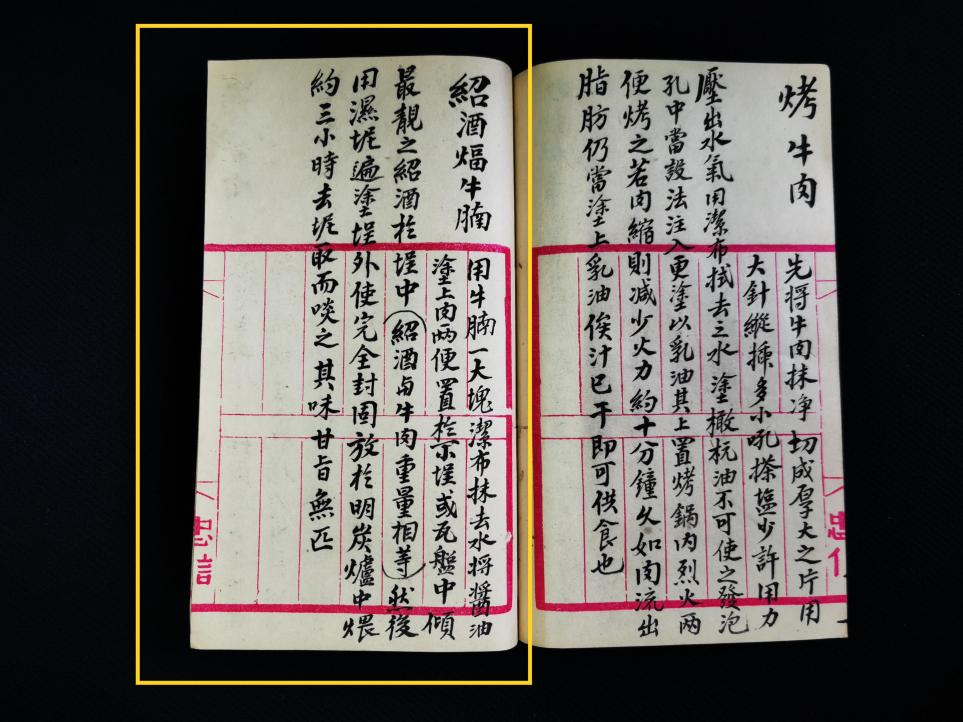 烤牛肉
先将牛肉抹净切成厚大之片用
大針縱揷多小吼搽塩少許用力
壓出水氣用潔布拭去之水塗橄杬油不可使之發泡
孔中當設法注入更塗以乳油其上置烤鍋内烈火両
便烤之若肉縮則减少火力約十分鐘久如肉流出
脂肪仍當塗上乳油俟汁已干即可供食也
忠信
紹酒煏牛腩
用牛腩一大塊潔布抹去水将醬油
塗上肉両便置於小埕或瓦盤中傾
最靚之紹酒於埕中(紹酒与牛肉重量相等)然後
用濕坭遍塗埕外使完全封固放於明炭爐中煨
約三小時去坭取而啖之其味甘旨無匹
忠信